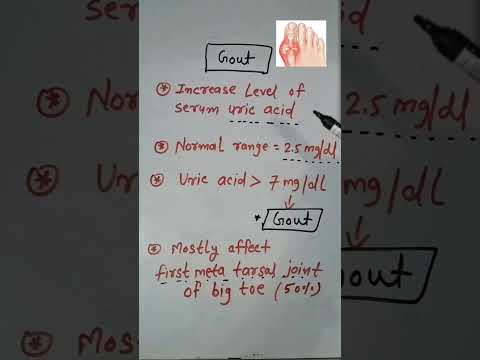 Gout
* Increase Level of
serum uric acid
* Normal range = 2.5 mg/dl
* Uric acid > 7 mg/dL
↓
* Gout
* Mostly affect
first meta tarsal joint
of big toe (50%)